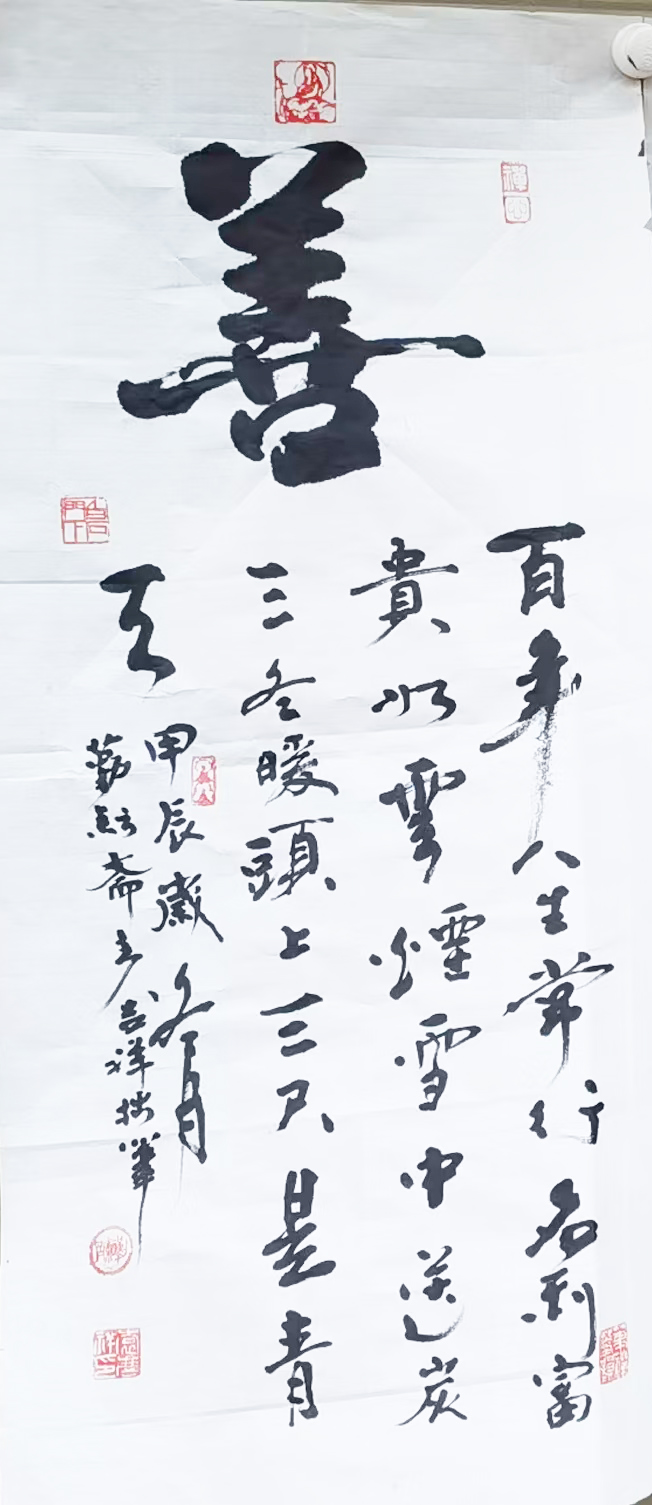 善
百年人生常行名利富
貴似雲煙雪中送炭
三冬暖頭上三尺是青
天
甲辰歲冬月
勤耘斋主吉祥拙筆